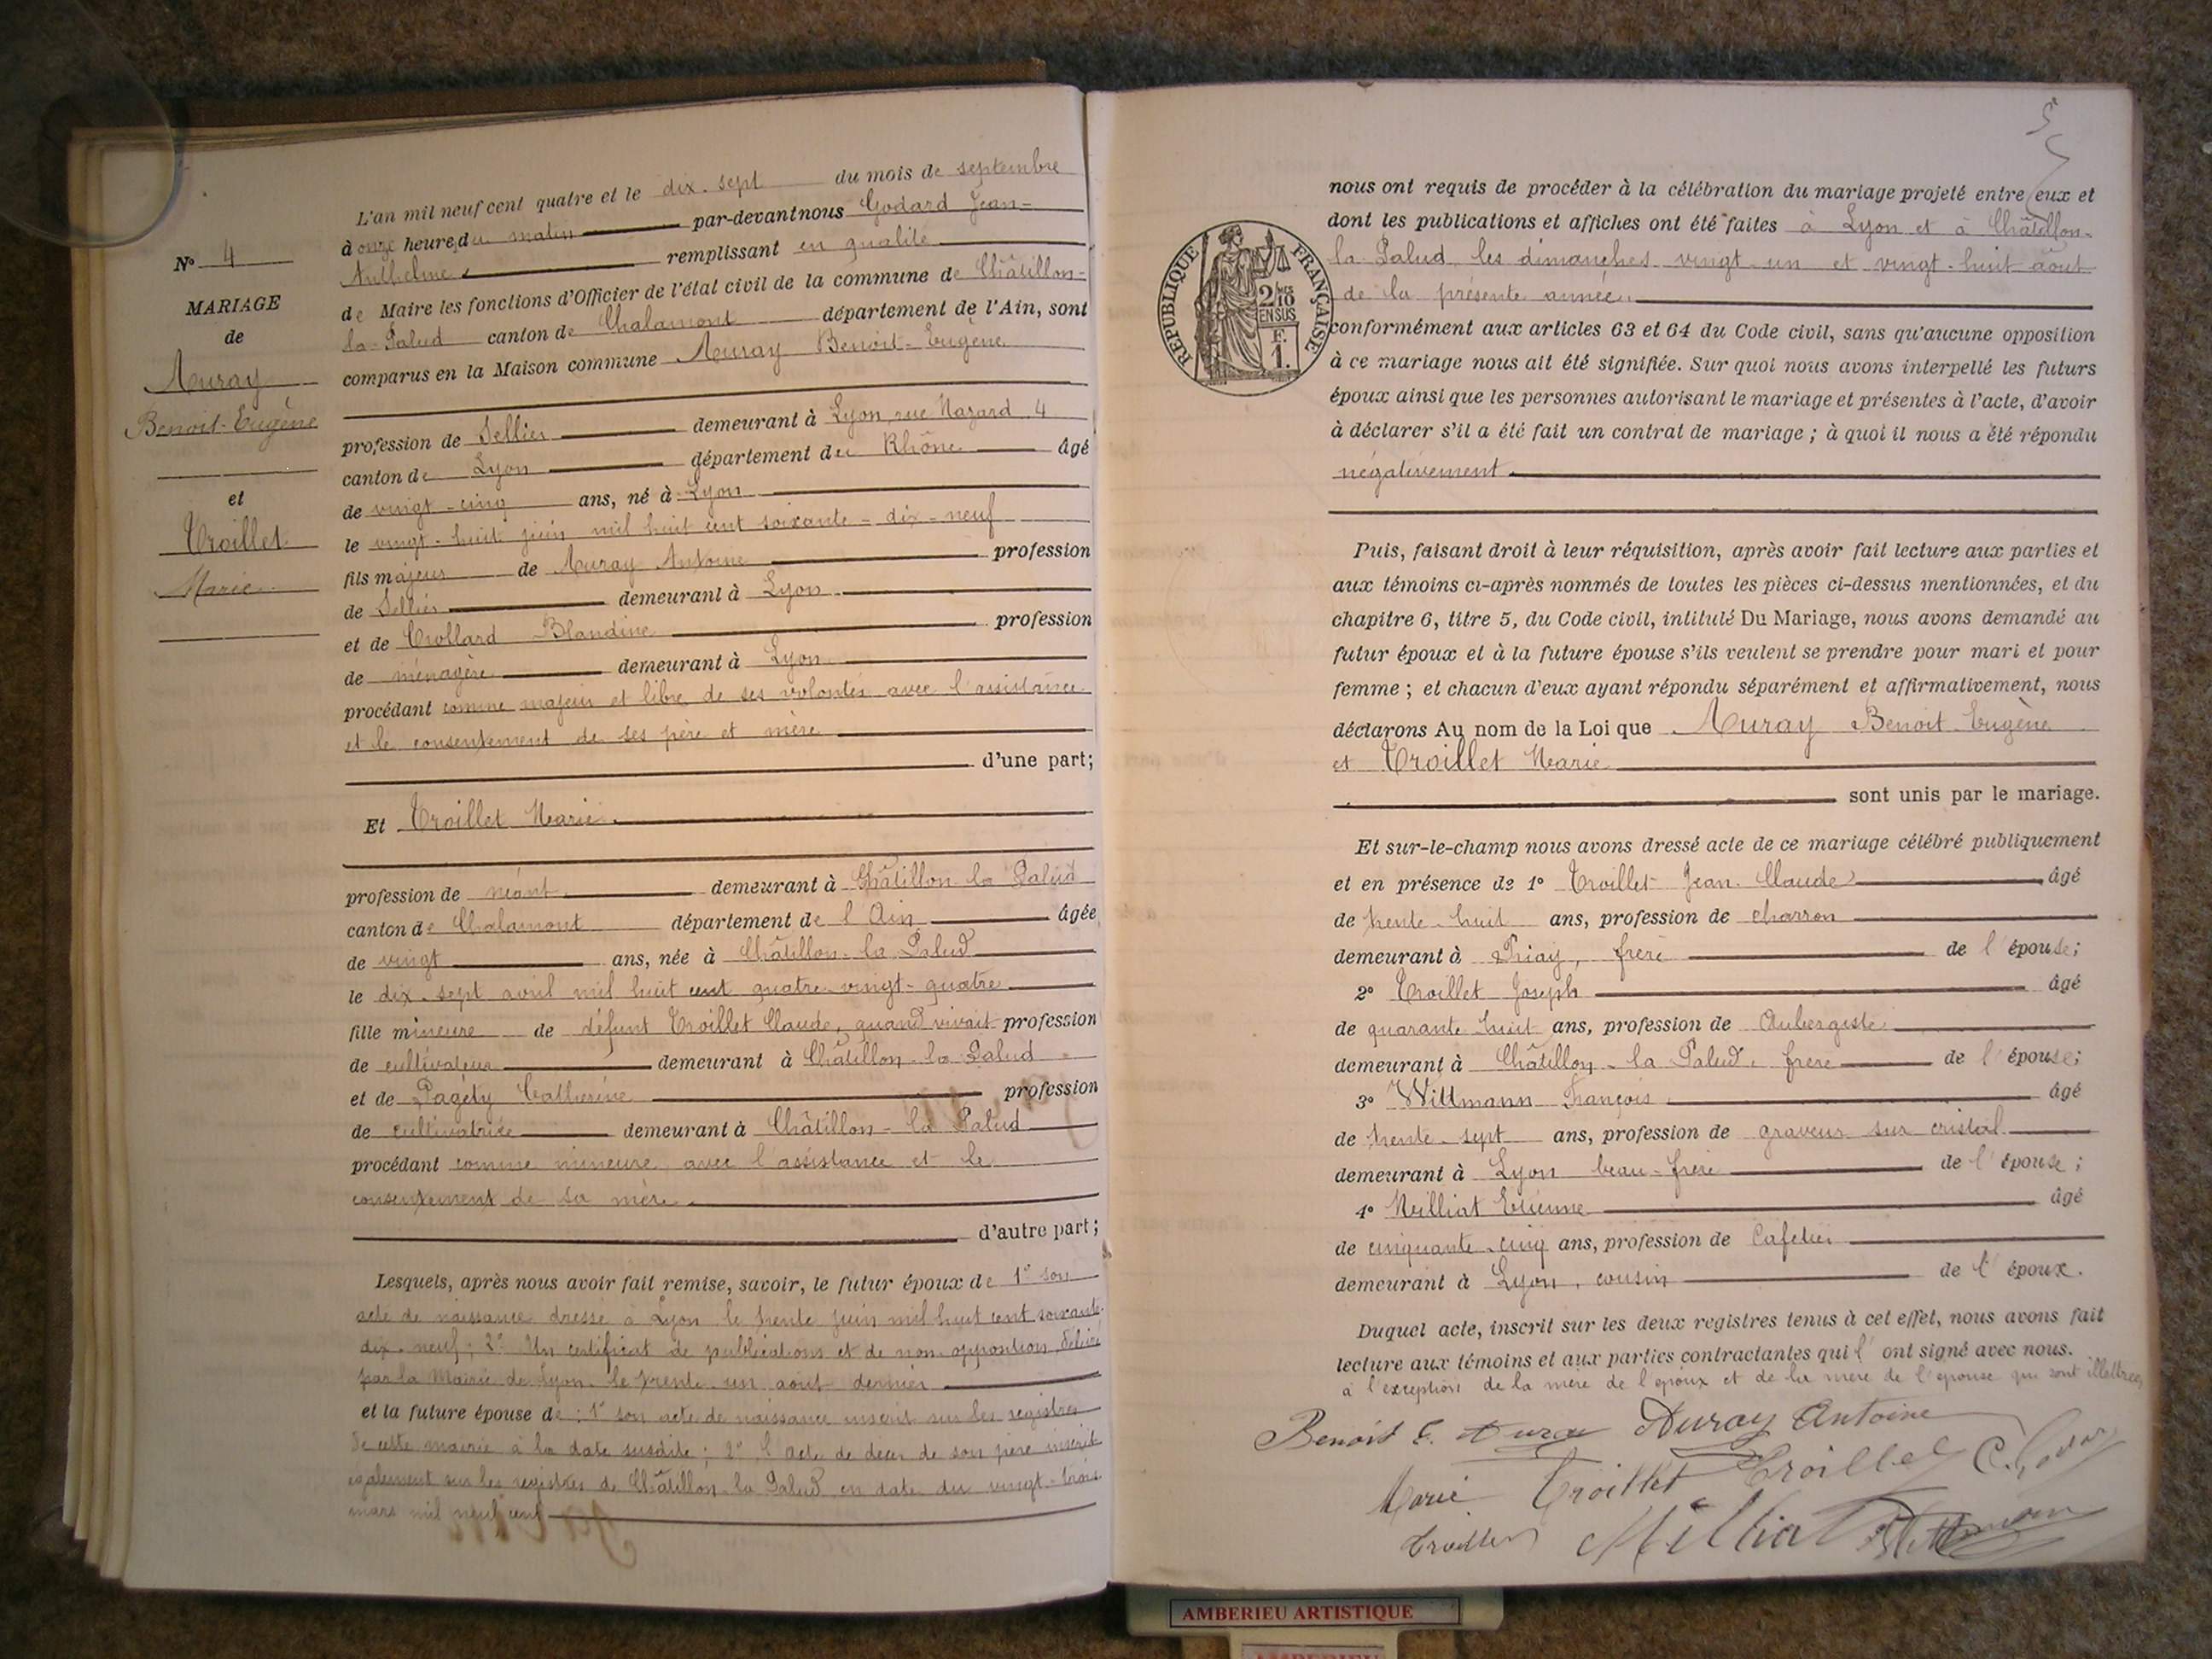 N° 4
MARIAGE
de
Auray
Benoit-Eugène
et
Troillet
Marie
L'an mil neuf cent quatre et le dix-sept du mois de septembre
à onze heures du matin par-devant nous Godard Jean-
Anthelme remplissant en qualité
de Maire les fonctions d'Officier de l'état civil de la commune de Châtillon-
la-Palud canton de Chalamont département de l'Ain, sont
comparus en la Maison commune Auray Benoit-Eugène
profession de Sellier demeurant à Lyon, rue Mazard, 4
canton de Lyon département du Rhône âgé
de vingt-cinq ans, né à Lyon
le vingt-huit juin mil huit cent soixante-dix-neuf
fils majeur de Auray Antoine profession
de Sellier demeurant à Lyon
et de Trollard Blandine profession
de ménagère demeurant à Lyon
procédant comme majeur et libre de ses volontés avec l'assistance
et le consentement de ses père et mère
d'une part;
Et Troillet Marie
profession de néant demeurant à Châtillon la Palud
canton de Chalamont département de l'Ain âgée
de vingt ans, née à Châtillon-la-Palud
le dix-sept avril mil huit cent quatre-vingt-quatre
fille mineure de défunt Troillet Claude, quand vivait profession
de cultivateur demeurant à Châtillon-la-Palud
et de Pagéty Catherine profession
de cultivatrice demeurant à Châtillon-la Palud
procédant comme mineure avec l'assistance et le
consentement de sa mère
d'autre part;
Lesquels, après nous avoir fait remise, savoir, le futur époux de 1° son
acte de naissance dressé à Lyon le trente juin mil huit cent soixante-
dix-neuf; 2° Un certificat de publications et de non-opposition délivré
par la Mairie de Lyon le trente-un août dernier
et la future épouse de : 1° son acte de naissance inscrit sur les registres
de cette mairie à la date susdite; 2° l'acte de décès de son père inscrit
également sur les registres de Châtillon-la Palud en date du vingt-trois
mars mil neuf cent
nous ont requis de procéder à la célébration du mariage projeté entre eux et
dont les publications et affiches ont été faites à Lyon et à Châtillon-
la Palud les dimanches vingt-un et vingt-huit août
de la présente année
conformément aux articles 63 et 64 du Code civil, sans qu'aucune opposition
à ce mariage nous ait été signifiée. Sur quoi nous avons interpellé les futurs
époux ainsi que les personnes autorisant le mariage et présentes à l'acte, d'avoir
à déclarer s'il a été fait un contrat de mariage ; à quoi il nous a été répondu
négativement
RÉPUBLIQUE FRANÇAISE
2/10 EN SUS
F. 1.
Puis, faisant droit à leur réquisition, après avoir fait lecture aux parties et
aux témoins ci-après nommés de toutes les pièces ci-dessus mentionnées, et du
chapitre 6, titre 5, du Code civil, intitulé Du Mariage, nous avons demandé au
futur époux et à la future épouse s'ils veulent se prendre pour mari et pour
femme ; et chacun d'eux ayant répondu séparément et affirmativement, nous
déclarons Au nom de la Loi que Auray Benoit Eugène
et Troillet Marie
sont unis par le mariage.
Et sur-le-champ nous avons dressé acte de ce mariage célébré publiquement
et en présence de 1° Troillet Jean-Claude âgé
de trente-huit ans, profession de charron
demeurant à Priay, frère de l'épouse;
2° Troillet Joseph âgé
de quarante huit ans, profession de Aubergiste
demeurant à Châtillon-la Palud, frère de l'épouse;
3° Wittmann François âgé
de trente-sept ans, profession de graveur sur cristal
demeurant à Lyon beau-frère de l'épouse;
4° Milliat Etienne âgé
de cinquante-cinq ans, profession de Cafetier
demeurant à Lyon, cousin de l'époux.
Duquel acte, inscrit sur les deux registres tenus à cet effet, nous avons fait
lecture aux témoins et aux parties contractantes qui l'ont signé avec nous.
à l'exception de la mère de l'époux et de la mère de l'épouse qui sont illettrées
Benoit E. Auray Auray Antoine
Marie Troillet Troillet
Troillet Milliat Wittmann
AMBERIEU ARTISTIQUE
AMBERIEU